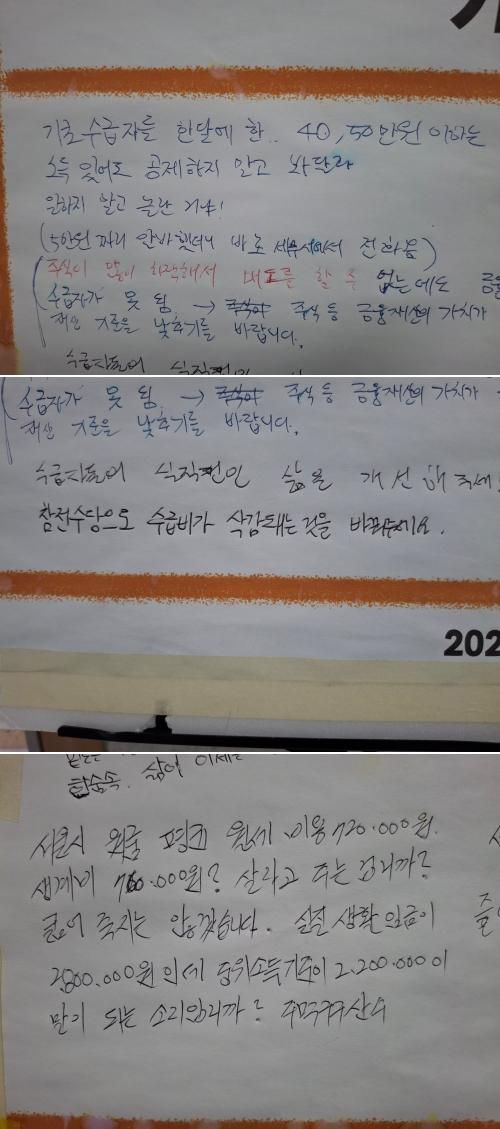 기초수급자를 한달에 한.. 40, 50만원 이하는
소득 있어도 공제하지 말고 봐달라
일하지 말고 놀란 거냐!
(5만원 짜리 알바 했더니 바로 세무서에서 전화옴)
주식이 많이 하락해서 매도를 할 수 없는데도 금융
수급자가 못 됨 → 주식 등 금융재산의 가치가
재산 기준을 낮추기를 바랍니다.
수급자가 못 됨 → 주식 등 금융재산의 가치가
재산 기준을 낮추기를 바랍니다.
수급자들의 식직적인 삶을 개선해주세요
참전수당으로 수급비가 삭감돼는것을 바꿔주세요.
202
한숨속. 삶이 이제는
서울시 원룸 평균 월세 비용 720.000원.
생계비 760.000원? 살라고 주는 겁니까?
굶어 죽지는 않겠습니다. 실질 생활 임금이
2800.000원 인데 중위소득기준이 2.200.000이
말이 되는 소리입니까? 주먹구구산수